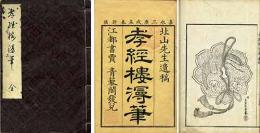 孝經樓漫筆 全
嘉永三庚戌
北山先生遺稿
孝經樓漫筆
江都書賈 青藜閣發兌